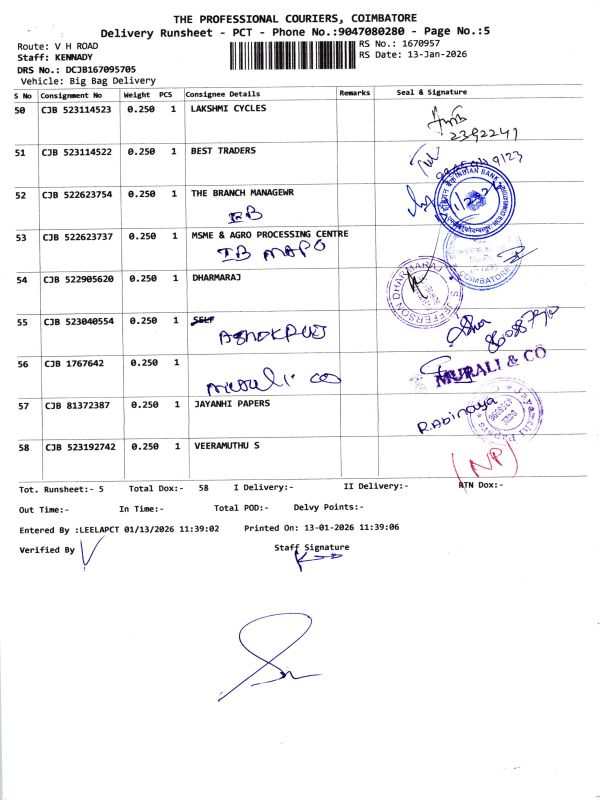 THE PROFESSIONAL COURIERS, COIMBATORE
Delivery Runsheet - PCT - Phone No.:9047080280 - Page No.:5
Route: V H ROAD
RS No.: 1670957
Staff: KENNADY
RS Date: 13-Jan-2026
DRS No.: DCJB167095705
Vehicle: Big Bag Delivery
S No Consignment No Weight PCS Consignee Details Remarks Seal & Signature
50 CJB 523114523 0.250 1 LAKSHMI CYCLES
2392241
51 CJB 523114522 0.250 1 BEST TRADERS
52 CJB 522623754 0.250 1 THE BRANCH MANAGEWR
INDIAN BANK
53 CJB 522623737 0.250 1 MSME & AGRO PROCESSING CENTRE
IB MAPC
COIMBATORE
54 CJB 522905620 0.250 1 DHARMARAJ
S JEFFERSON DHARMARAJ
55 CJB 523040554 0.250 1 SELF
56 CJB 1767642 0.250 1
Murali. co
MURALI & CO
57 CJB 81372387 0.250 1 JAYANHI PAPERS
R.Abinaya
58 CJB 523192742 0.250 1 VEERAMUTHU S
(NP)
Tot. Runsheet:- 5 Total Dox:- 58 I Delivery:- II Delivery:- RTN Dox:-
Out Time:- In Time:- Total POD:- Delvy Points:-
Entered By :LEELAPCT 01/13/2026 11:39:02 Printed On: 13-01-2026 11:39:06
Verified By
Staff Signature